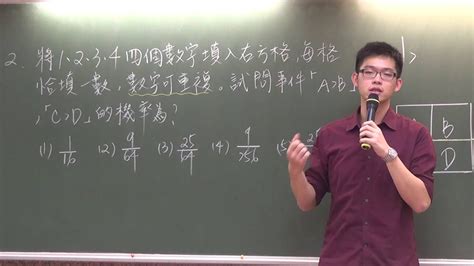 2. 將1、2、3、4四個數字填入右方格,每格
恰填一數,數字可重複。試問事件「A>B」
,「C>D」的機率為?
(1) 1/16 (2) 9/64 (3) 25/64 (4) 9/256 (5)
B
D